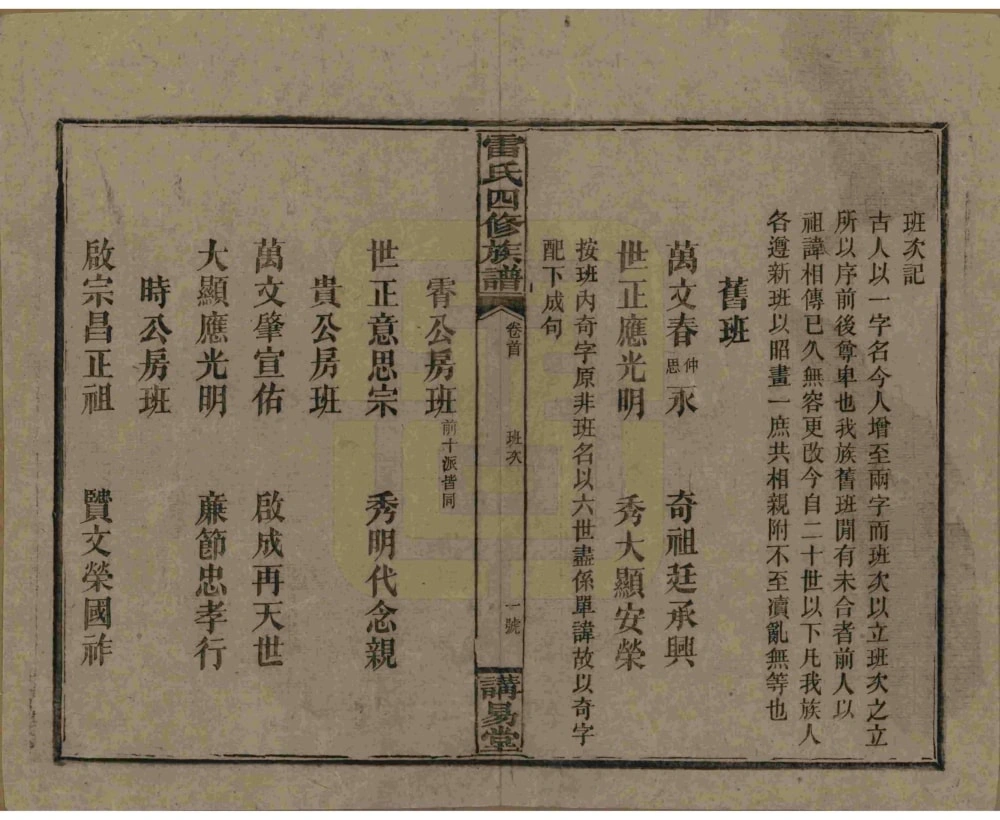 班次記
古人以一字名今人增至兩字而班次以立班次之立
所以序前後尊卑也我族舊班閒有未合者前人以
祖諱相傳已久無容更改今自二十世以下凡我族人
各遵新班以昭畫一庶共相親附不至瀆亂無等也
舊班
萬文春仲思永 奇祖廷承興
世正應光明 秀大顯安榮
按班內奇字原非班名以六世盡係單諱故以奇字
配下成句
雷氏四修族譜 卷首 班次 一號 講易堂
霄公房班前十派皆同
世正意思宗 秀明代念親
貴公房班
萬文肇宣佑 啟成再天世
大顯應光明 廉節忠孝行
時公房班
啟宗昌正祖 賢文榮國祚